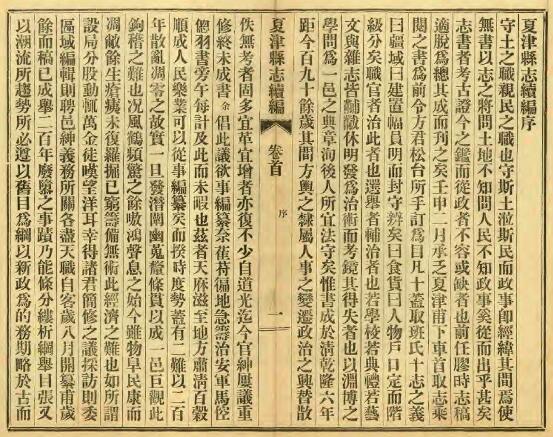 夏津縣志續編序
守土之職親民之職也守斯土涖斯民而政事卽經緯其間爲使
無書以志之將問土地不知問人民不知政事奚從而出乎甚矣
志書者考古證今之鑑而從政者不容或缺者也前任膠時志稿
適脫爲總其成而刊之矣壬申二月承乏夏津甫下車首取志乘
閱之書爲前令方君松台所手訂爲目凡十蓋取班氏十志之義
曰疆域曰建置幅員明而封守辨矣曰食貨曰人物戶口定而階
級分矣職官者治此者也選舉者輔治者也若學校若典禮若藝
文與雜志皆黼黻休明發爲治術而考鏡其得失者也以淵博之
學問爲一邑之典章洵後人所宜法守矣惟書成於淸乾隆六年
距今百九十餘歲其間方輿之隸屬人事之變遷政治之興替散
夏津縣志續編 卷首 序 一
佚無考者固多宜革宜增者亦復不少自道光迄今官紳屢議重
修終未成書余倡此議欲事編纂奈萑苻徧地急籌治安軍馬倥
傯羽書旁午每計及此而未暇也茲者天庥滋至地方肅淸百穀
順成人民樂業可以從事編纂矣而揆時度勢蓋有二難以二百
年散亂凋零之故實一旦發潛闡幽蒐羅條貫以成一邑巨觀此
鈎稽之難也况風鶴頻驚之餘嗷鴻聲息之始今雖物阜民康而
凋敝餘生瘡痍未復羅掘已窮籌備無術此經濟之難也如所謂
設局分股動輒萬金徒嘆望洋耳幸得諸君簡修之議採訪則委
區域編輯則聘邑紳義務所關各盡天職自客歲八月開纂甫歲
餘而稿已成舉二百年廢墜之事蹟乃能條分縷析綱舉目張又
以潮流所趨勢所必遵以舊目爲綱以新政爲的務期略於古而